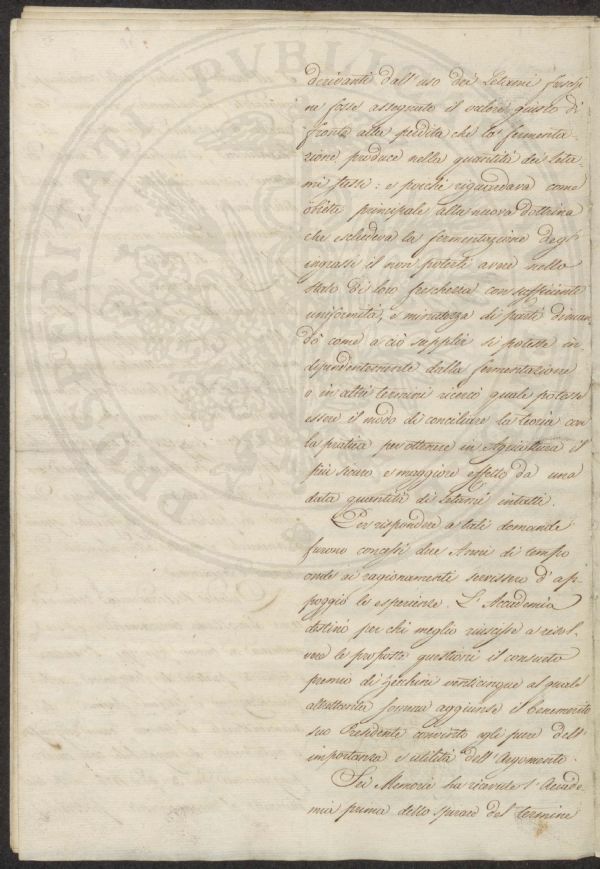 derivanti dall'uso dei Letami freschi
ne fosse assegnato il valore giusto di
fronte alla perdita che la fermenta-
zione produce nella quantità dei leta-
mi stessi: e poiché riguardava come
obietto principale alla nuova dottrina
che escludeva la fermentazione degl'
ingrassi il non poterli avere nello
stato di loro freschezza con sufficiente
uniformità, e minutezza di parti diman-
dò come a ciò supplir si potesse in-
dipendentemente dalla fermentazione
o in altri termini ricercò quale potesse
essere il modo di conciliare la teoria con
la pratica per ottenere in Agricoltura il
più sicuro e maggiore effetto da una
data quantità di letami intatti.
Per rispondere a tali domande
furono concessi due Anni di tempo
onde ai ragionamenti servissero d'ap-
poggio le esperienze. L'Accademia
destinò per chi meglio riuscisse a risol-
vere le proposte questioni il consueto
premio di Zecchini venticinque al quale
altrettanta somma aggiunse il Benemerito
suo Presidente convinto egli pure dell'
importanza e utilità dell'Argomento.
Sei Memorie ha ricevute l'Accade-
mia prima dello spirare del termine
PVBLICAE
PROSPERITATI